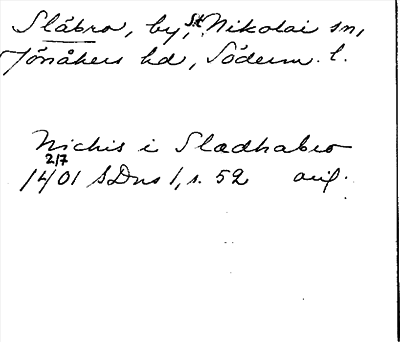 Släbro, by, S:t Nikolai sn,
Jönåkers hd, Söderm. l.
Nichis i Sladhabro
2/7
1401 SDns 1, s. 52 orig.